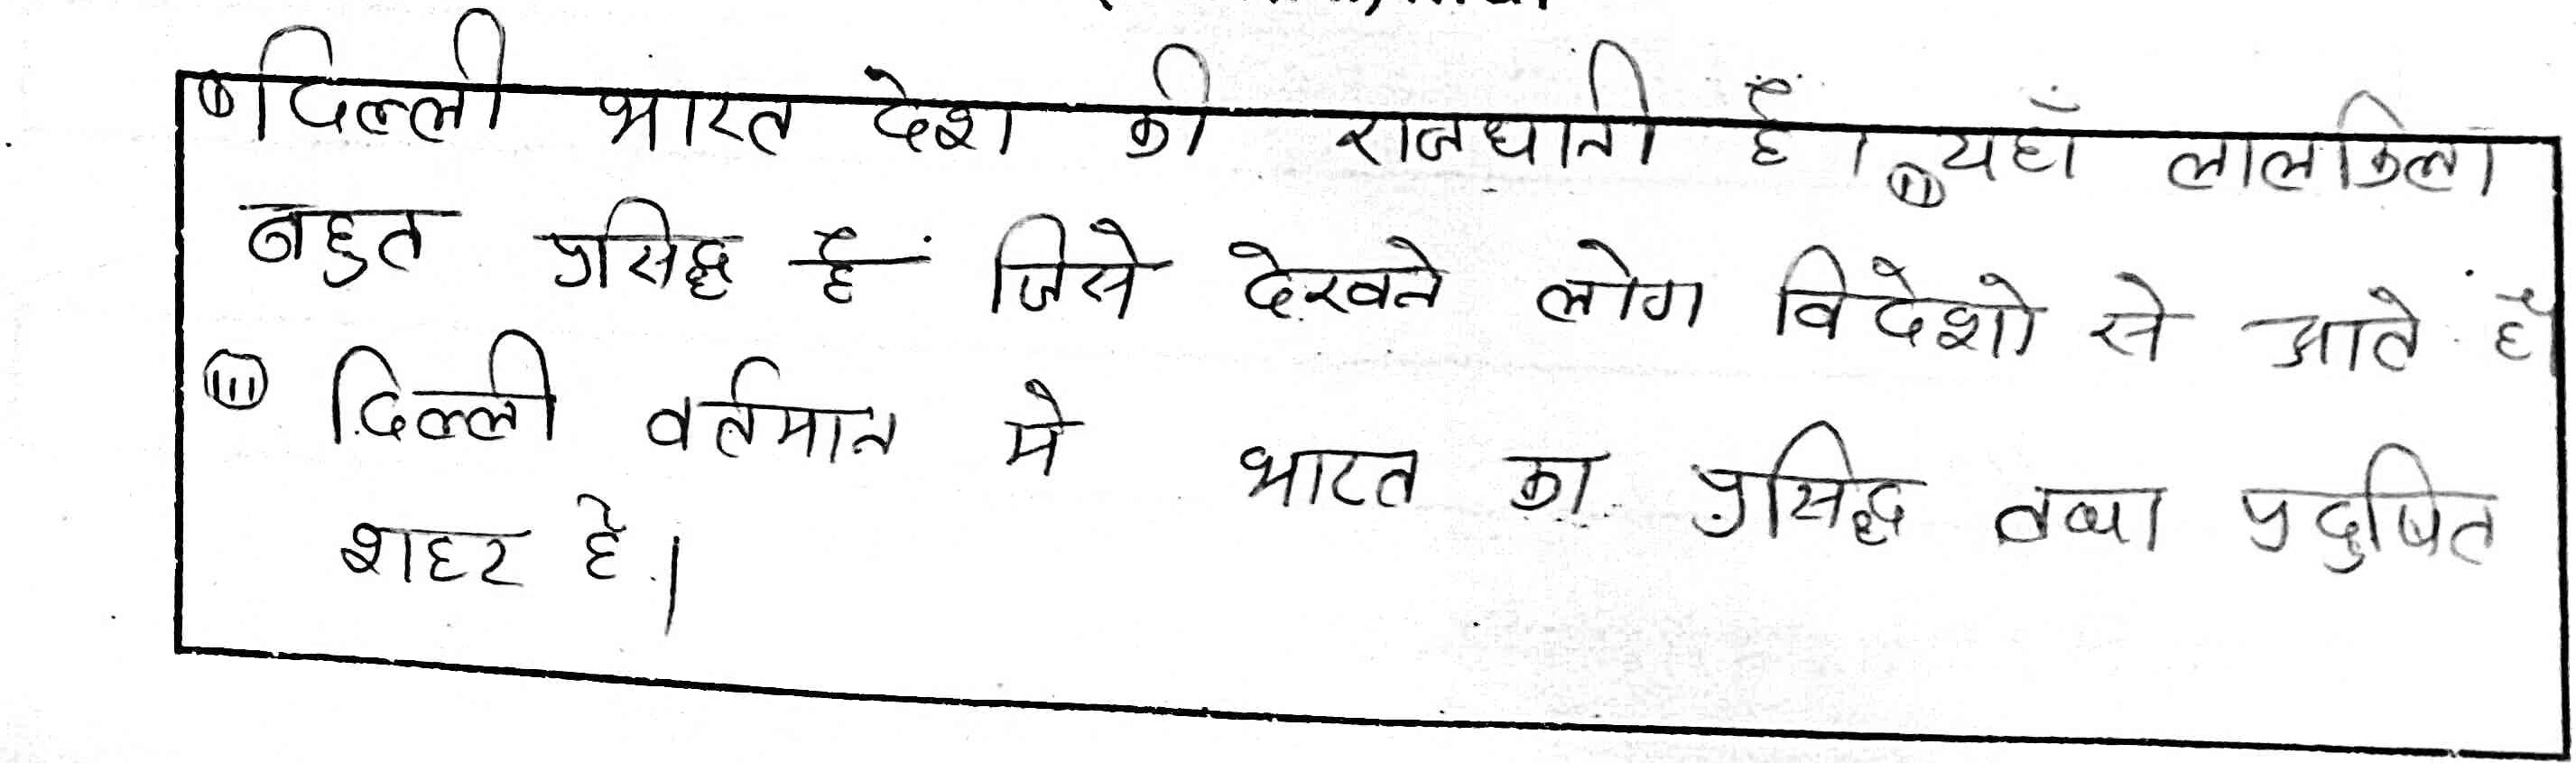 (i) दिल्ली भारत देश की राजधानी है। (ii) यहाँ लालकिला
बहुत प्रसिद्ध है जिसे देखने लोग विदेशो से आते है
(iii) दिल्ली वर्तमान मे भारत का प्रसिद्ध तथा प्रदुषित
शहर है।